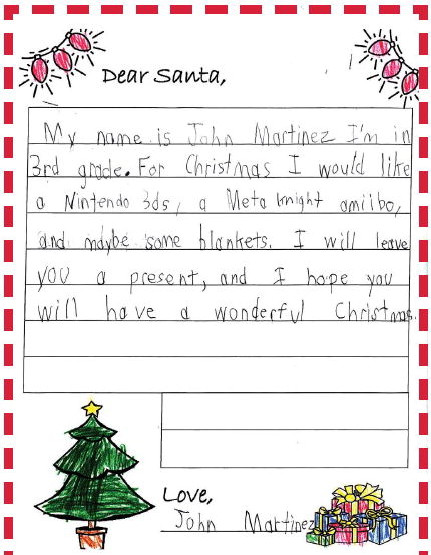 Dear Santa,
My name is John Martinez I'm in
3rd grade. For Christmas I would like
a Nintendo 3ds, a Meta knight amiibo,
and maybe some blankets. I will leave
you a present, and I hope you
will have a wonderful Christmas.
Love,
John Martinez